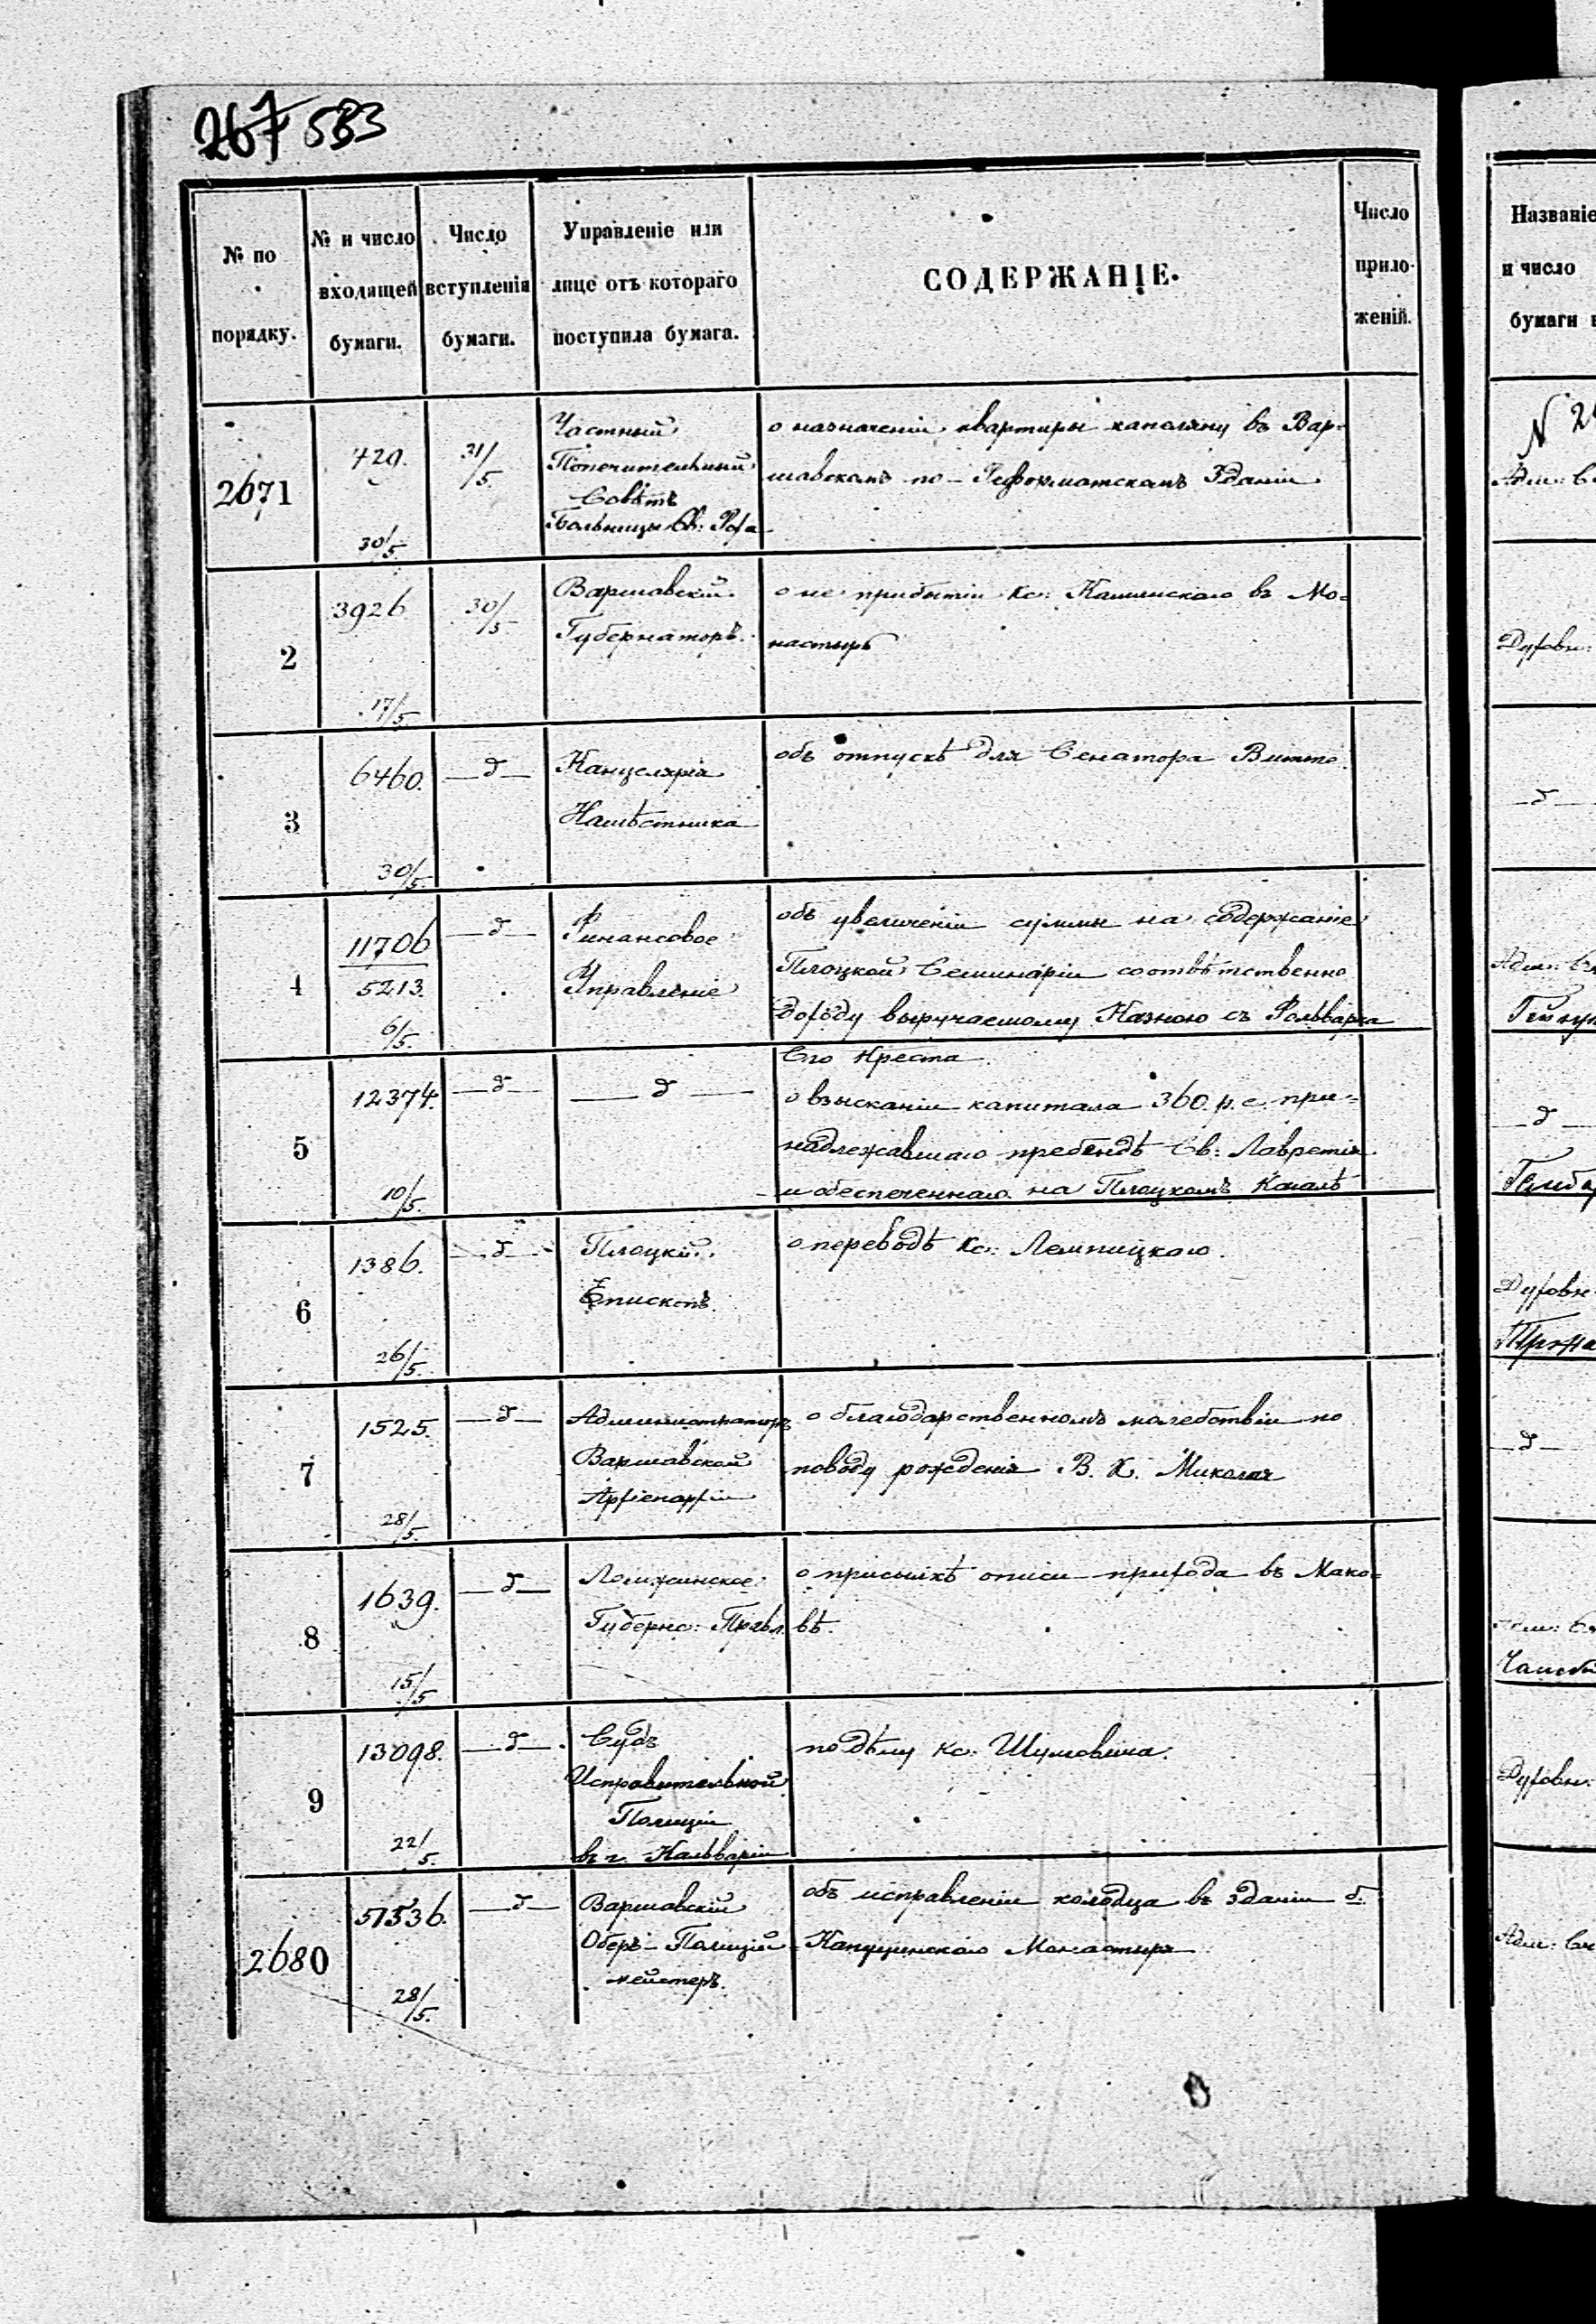 267 583
№ по порядку.
№ и число входящей бумаги.
Число вступленія бумаги.
Управленіе или лице отъ котораго поступила бумага.
СОДЕРЖАНІЕ.
Число приложеній.
2671
429.
30/5.
31/5.
Частный
Попечительный
Совѣтъ
Больницы Св: Роха
о назначеніи квартиры капеляну въ Вар-
шавскомъ по-Реформатскомъ Зданіи
2
3926
17/5.
30/5.
Варшавскій
Губернаторъ.
о не прибытіи Кс: Камінскаго въ Мо-
настырь
3
6460.
30/5.
—д—
Канцелярія
Намѣстника
объ отпускѣ для Сенатора Витте.
4
11706
5213.
6/5.
—д—
Финансовое
Управленіе
объ увеличеніи суммы на содержаніе
Плоцкой Семинаріи соотвѣтственно
доходу выручаемому Казною съ Фольварка
Сго Креста
5
12374.
10/5.
—д—
—д—
о взысканіи капитала 360. р. с. при-
надлежавшаго пребендѣ Св: Лаврентія
и обеспеченнаго на Плоцкомъ Кагалѣ
6
1386.
26/5.
—д—
Плоцкій
Епископъ.
о переводѣ Кс: Лемпицкаго.
7
1525.
28/5.
—д—
Администраторъ
Варшавской
Архіепархіи
о благодарственномъ молебствіи по
поводу рожденія В. К. Николая
8
1639.
15/5
—д—
Ломжинское
Губернс: Правл.
о присылкѣ описи прихода въ Мако-
вѣ.
9
13098.
22/5.
—д—
Судъ
Исправительной
Полиціи
въ г. Кальваріи
по дѣлу Кс: Шумовича.
2680
51536.
28/5.
—д—
Варшавскій
Оберъ-Полицій-
мейстеръ.
объ исправленіи колодца въ зданіи б.
Капуцинскаго Монастыря
Названіе
и число
бумаги
N 2
Адм:
Духовн:
—д—
Адм:
—д—
Духовн
—д—
Духовн:
Адм: